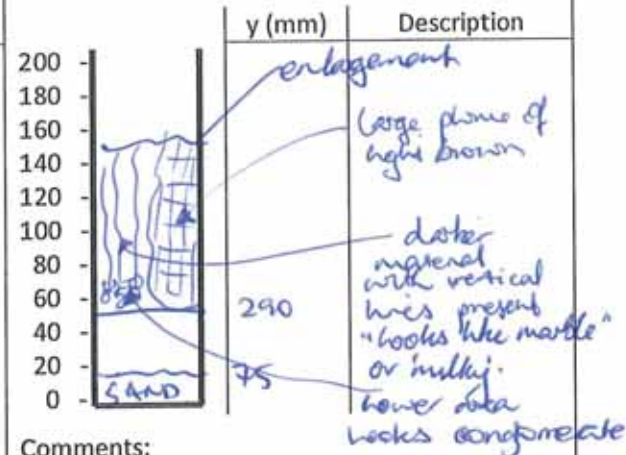 y (mm) Description
200
180
160
140
120
100
80
60
40
20
0
enlagement
large plume of
light brown
darker
material
with vertical
lines present
"looks like marble"
or 'milky'.
Lower area
looks conglomerate
290
75
SAND
Comments: